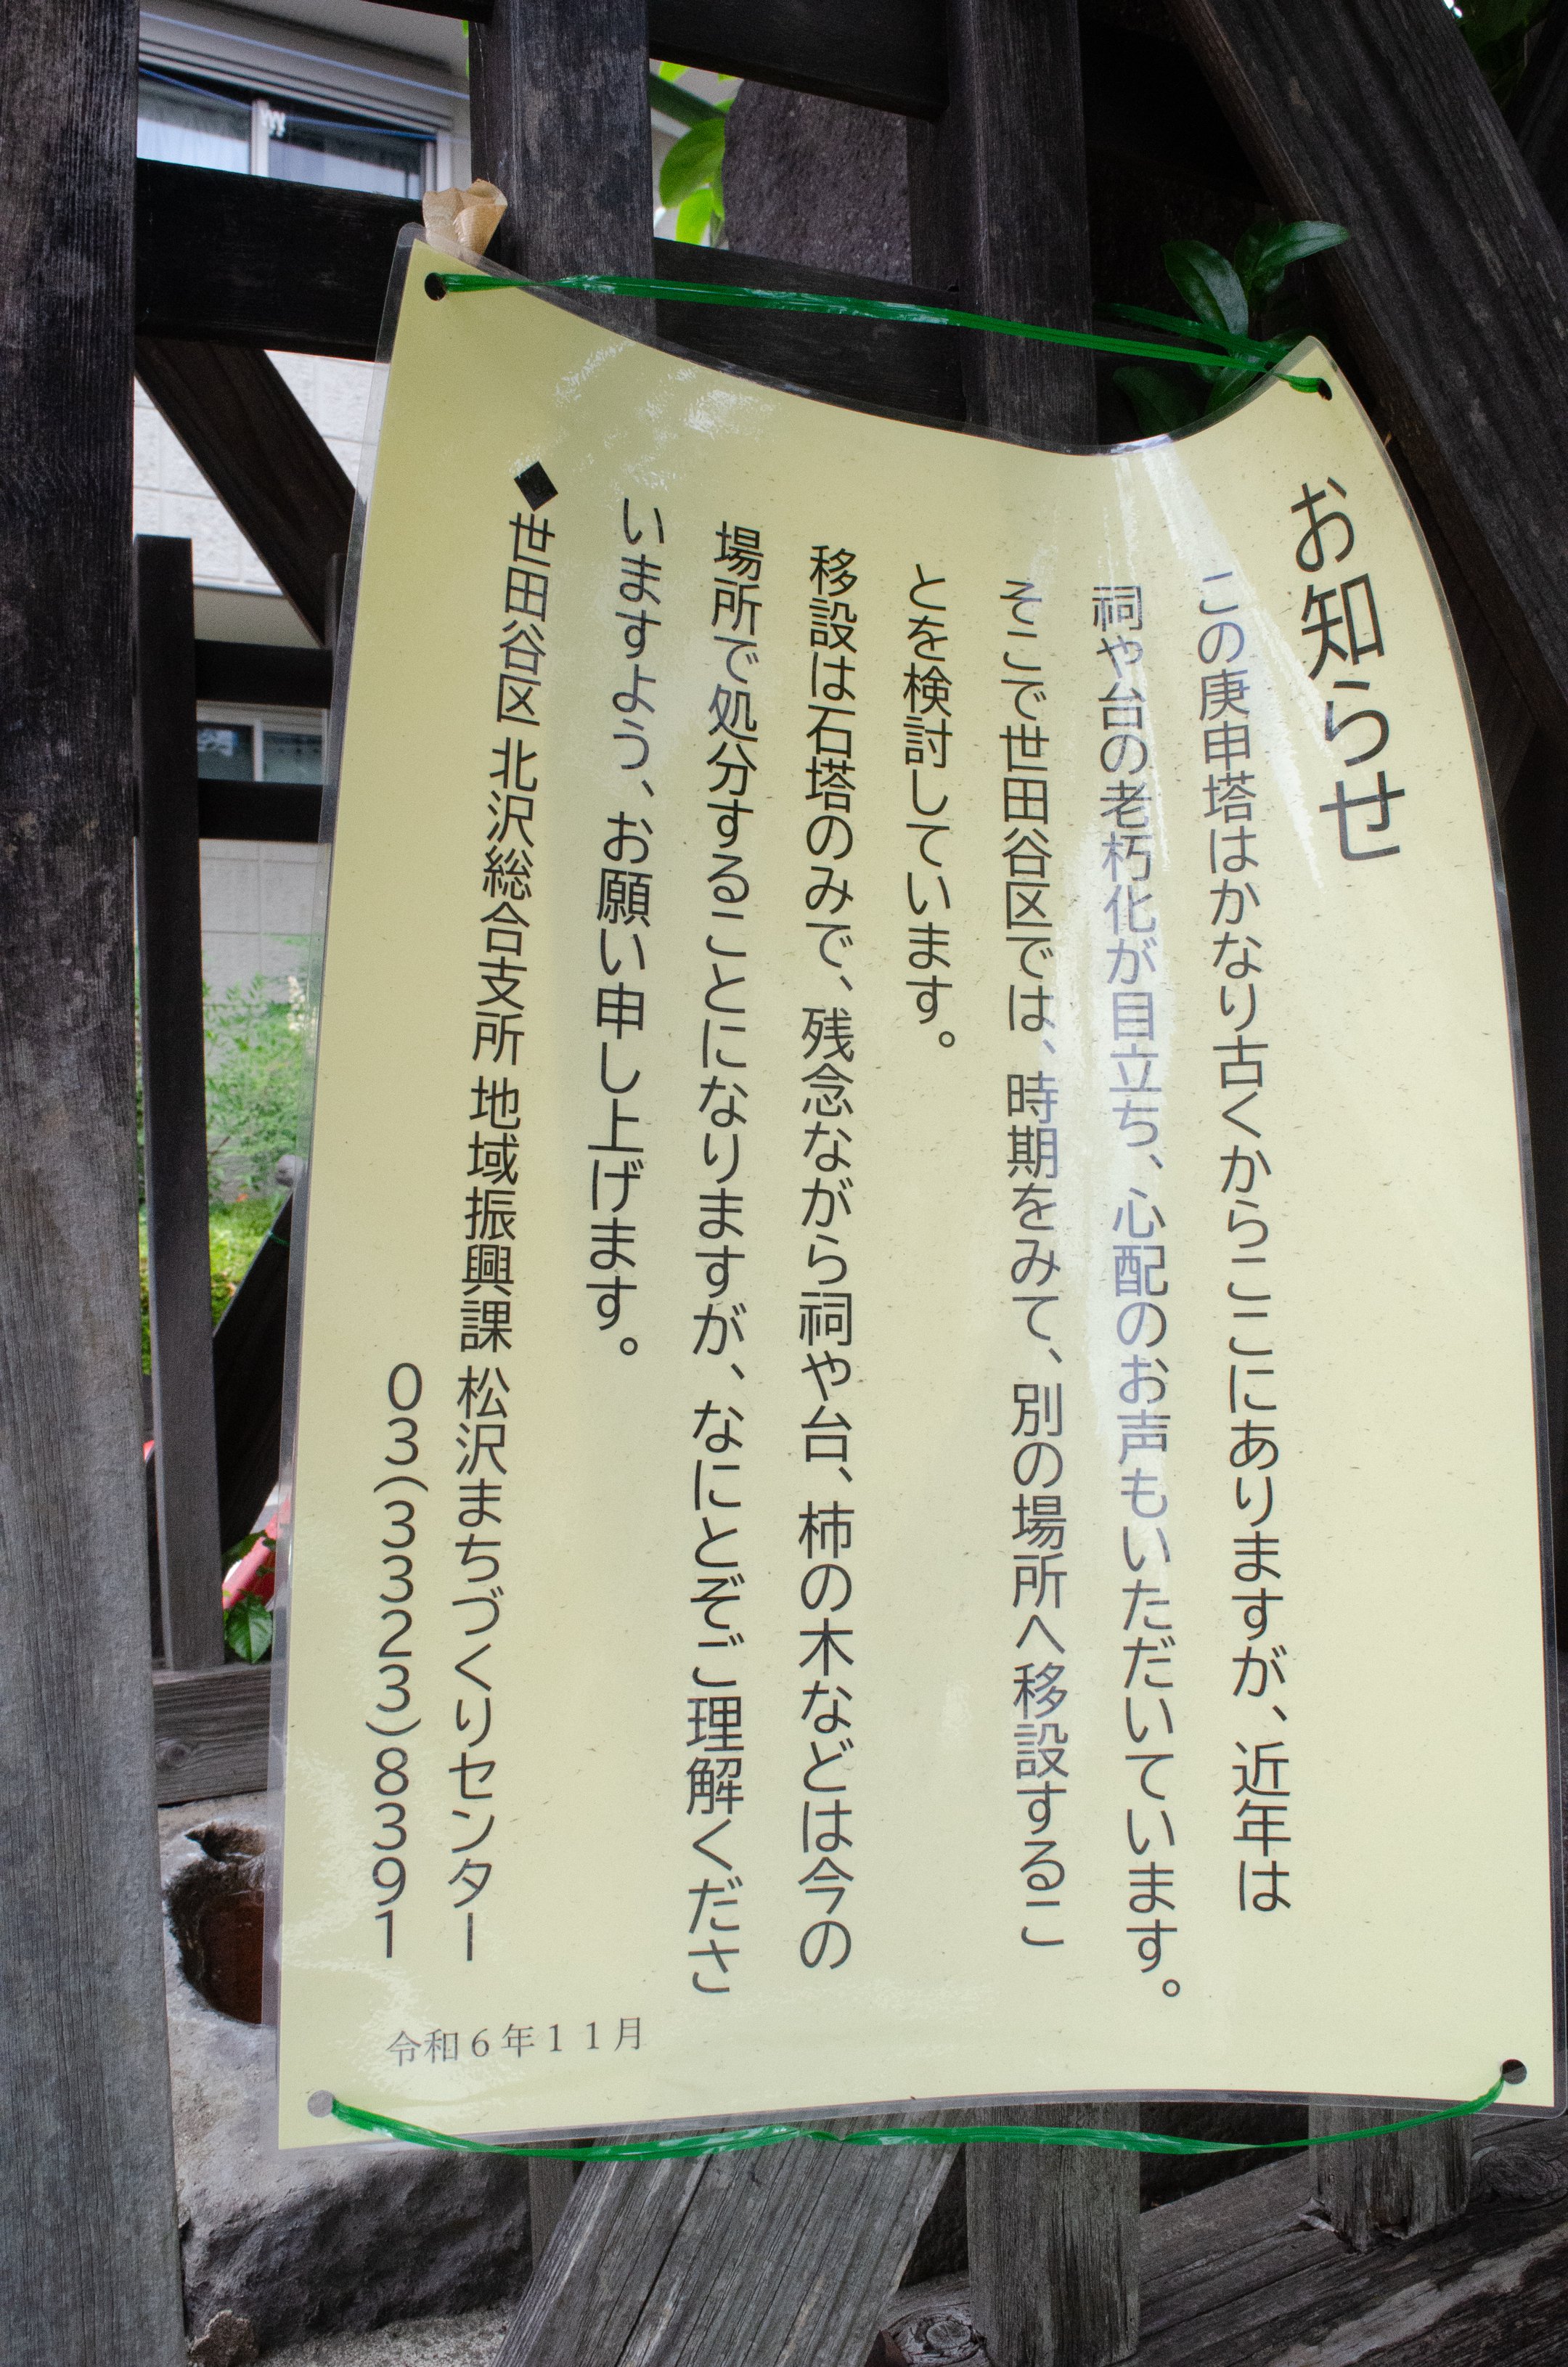 お知らせ
この庚申塔はかなり古くからここにありますが、近年は
祠や台の老朽化が目立ち、心配のお声もいただいています。
そこで世田谷区では、時期をみて、別の場所へ移設するこ
とを検討しています。
移設は石塔のみで、残念ながら祠や台、柿の木などは今の
場所で処分することになりますが、なにとぞご理解くださ
いますよう、お願い申し上げます。
◆世田谷区 北沢総合支所 地域振興課 松沢まちづくりセンター
０３(３３２３(８３９１
令和６年１１月